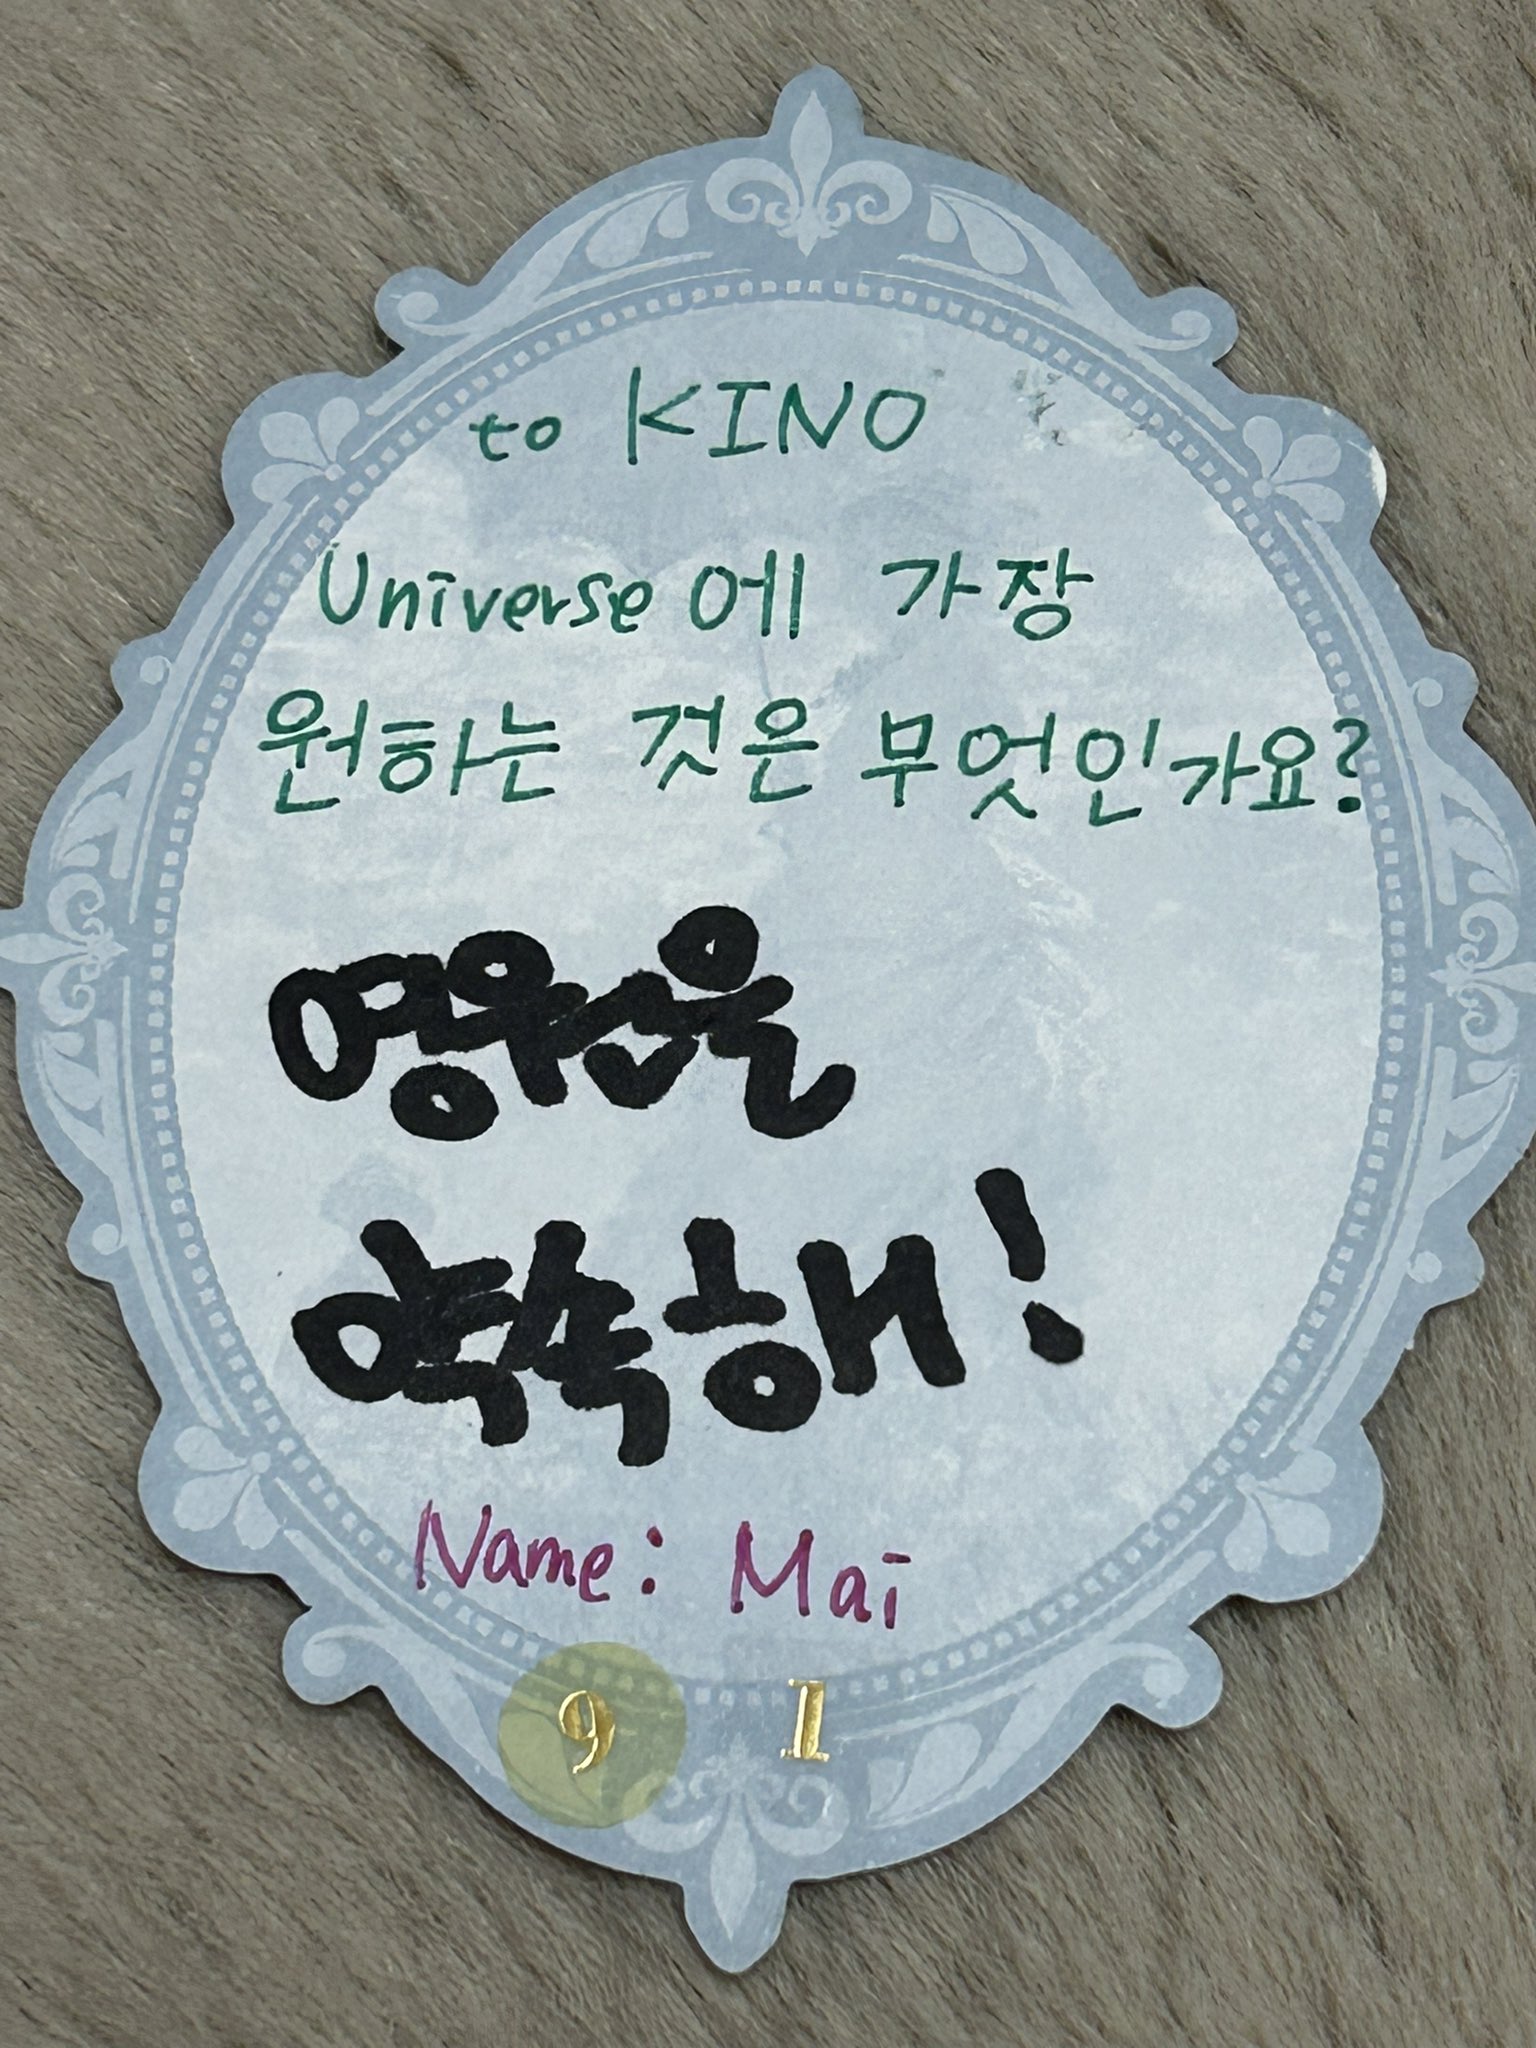 to KINO
Universe에 가장
원하는 것은 무엇인가요?
영원을
약속해!
Name: Mai
9 1